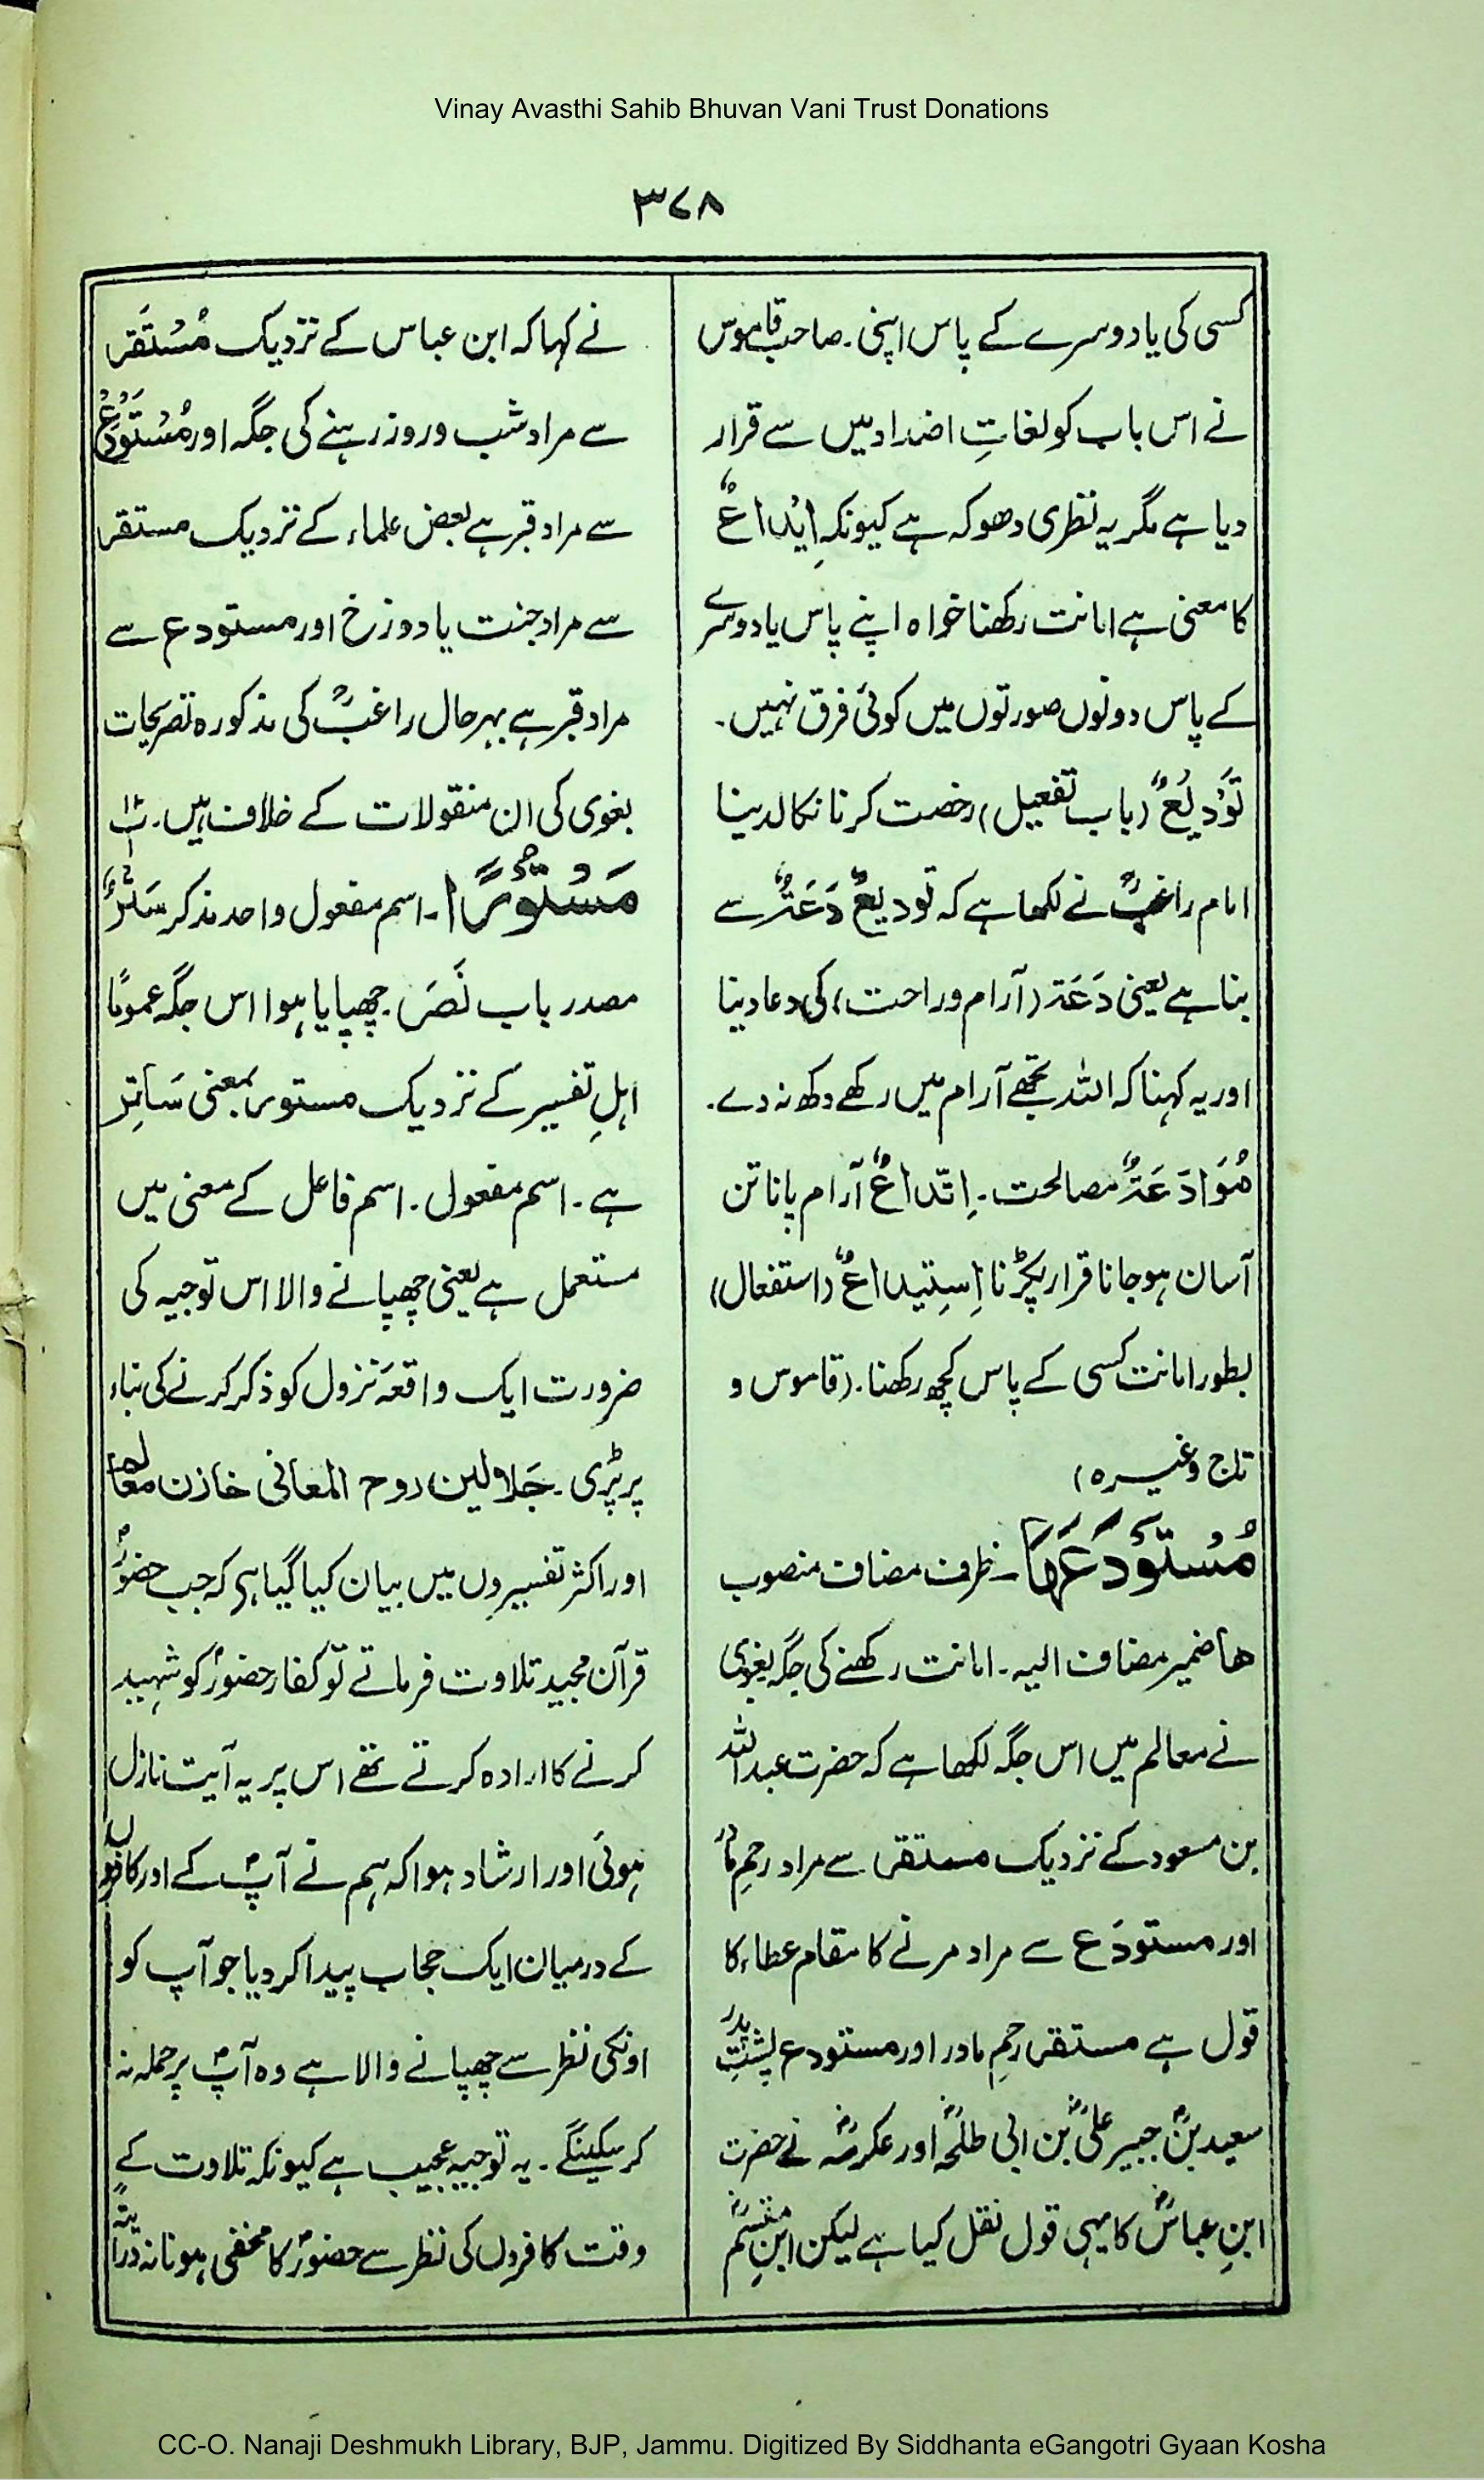 Vinay Avasthi Sahib Bhuvan Vani Trust Donations
۳۷۸
کسی کی یا دوسرے کے پاس اپنی۔ صاحب قاموس
نے اس باب کو لغاتِ اضداد میں سے قرار
دیا ہے مگر یہ نظری دھوکہ ہے کیونکہ اِیْدَاعٌ
کا معنی ہے امانت رکھنا خواہ اپنے پاس یا دوسرے
کے پاس دونوں صورتوں میں کوئی فرق نہیں۔
تَوْدِیْعٌ (باب تفعیل) رخصت کرنا نکالدینا
امام راغبؒ نے لکھا ہے کہ تودیعٌ دَعَۃٌ سے
بنا ہے یعنی دَعَۃ (آرام و راحت) کی دعا دینا
اور یہ کہنا کہ اللہ تجھے آرام میں رکھے دکھ نہ دے۔
مُوَادَعَۃٌ مصالحت۔ اِتّداعٌ آرام پانا تن
آسان ہو جانا قرار پکڑنا اِسِتیداعٌ (استفعال)
بطور امانت کسی کے پاس کچھ رکھنا۔ (قاموس و
تاج وغیرہ)
مُسْتَوْدَعَہَا۔ ظرف مضاف منصوب
ھا ضمیر مضاف الیہ۔ امانت رکھنے کی جگہ بغوی
نے معالم میں اس جگہ لکھا ہے کہ حضرت عبداللہ
بن مسعود کے نزدیک مستقر سے مراد رحمِ مادر
اور مستودَع سے مراد مرنے کا مقام عطاء کا
قول ہے مستقر رحمِ مادر اور مستودع پشتِ پدر
سعید بنؒ جبیر علیؒ بن ابی طلحہ اور عکرمہؒ نے حضرت
ابنِ عباسؓ کا یہی قول نقل کیا ہے لیکن ابنِ مقسم
نے کہا کہ ابن عباس کے نزدیک مُسْتَقَر
سے مراد شب و روز رہنے کی جگہ اور مُسْتَوْدَعُ
سے مراد قبر ہے بعض علماء کے نزدیک مستقر
سے مراد جنت یا دوزخ اور مستودع سے
مراد قبر ہے بہرحال راغبؒ کی مذکورہ تصریحات
بغوی کی ان منقولات کے خلاف ہیں۔
مَسْتُوْرًا۔ اسم مفعول واحد مذکر سَتْرٌ
مصدر باب نَصَرَ۔ چھپایا ہوا اس جگہ عمومًا
اہلِ تفسیر کے نزدیک مستور بمعنی سَاتِر
ہے۔ اسم مفعول۔ اسم فاعل کے معنی میں
مستعمل ہے یعنی چھپانے والا اس توجیہ کی
ضرورت ایک واقعۂ نزول کو ذکر کرنے کی بناء
پر پڑی۔ جَلالین روح المعانی خازن معالم
اور اکثر تفسیروں میں بیان کیا گیا ہی کہ جب حضورؐ
قرآن مجید تلاوت فرماتے تو کفار حضورؐ کو شہید
کرنے کا ارادہ کرتے تھے اس پر یہ آیت نازل
ہوئی اور ارشاد ہوا کہ ہم نے آپؐ کے اور کافروں
کے درمیان ایک حجاب پیدا کر دیا جو آپ کو
اونکی نظر سے چھپانے والا ہے وہ آپؐ پر حملہ نہ
کر سکینگے۔ یہ توجیہ عجیب ہے کیونکہ تلاوت کے
وقت کافروں کی نظر سے حضورؐ کا مخفی ہونا نہ درایتہً
CC-O. Nanaji Deshmukh Library, BJP, Jammu. Digitized By Siddhanta eGangotri Gyaan Kosha